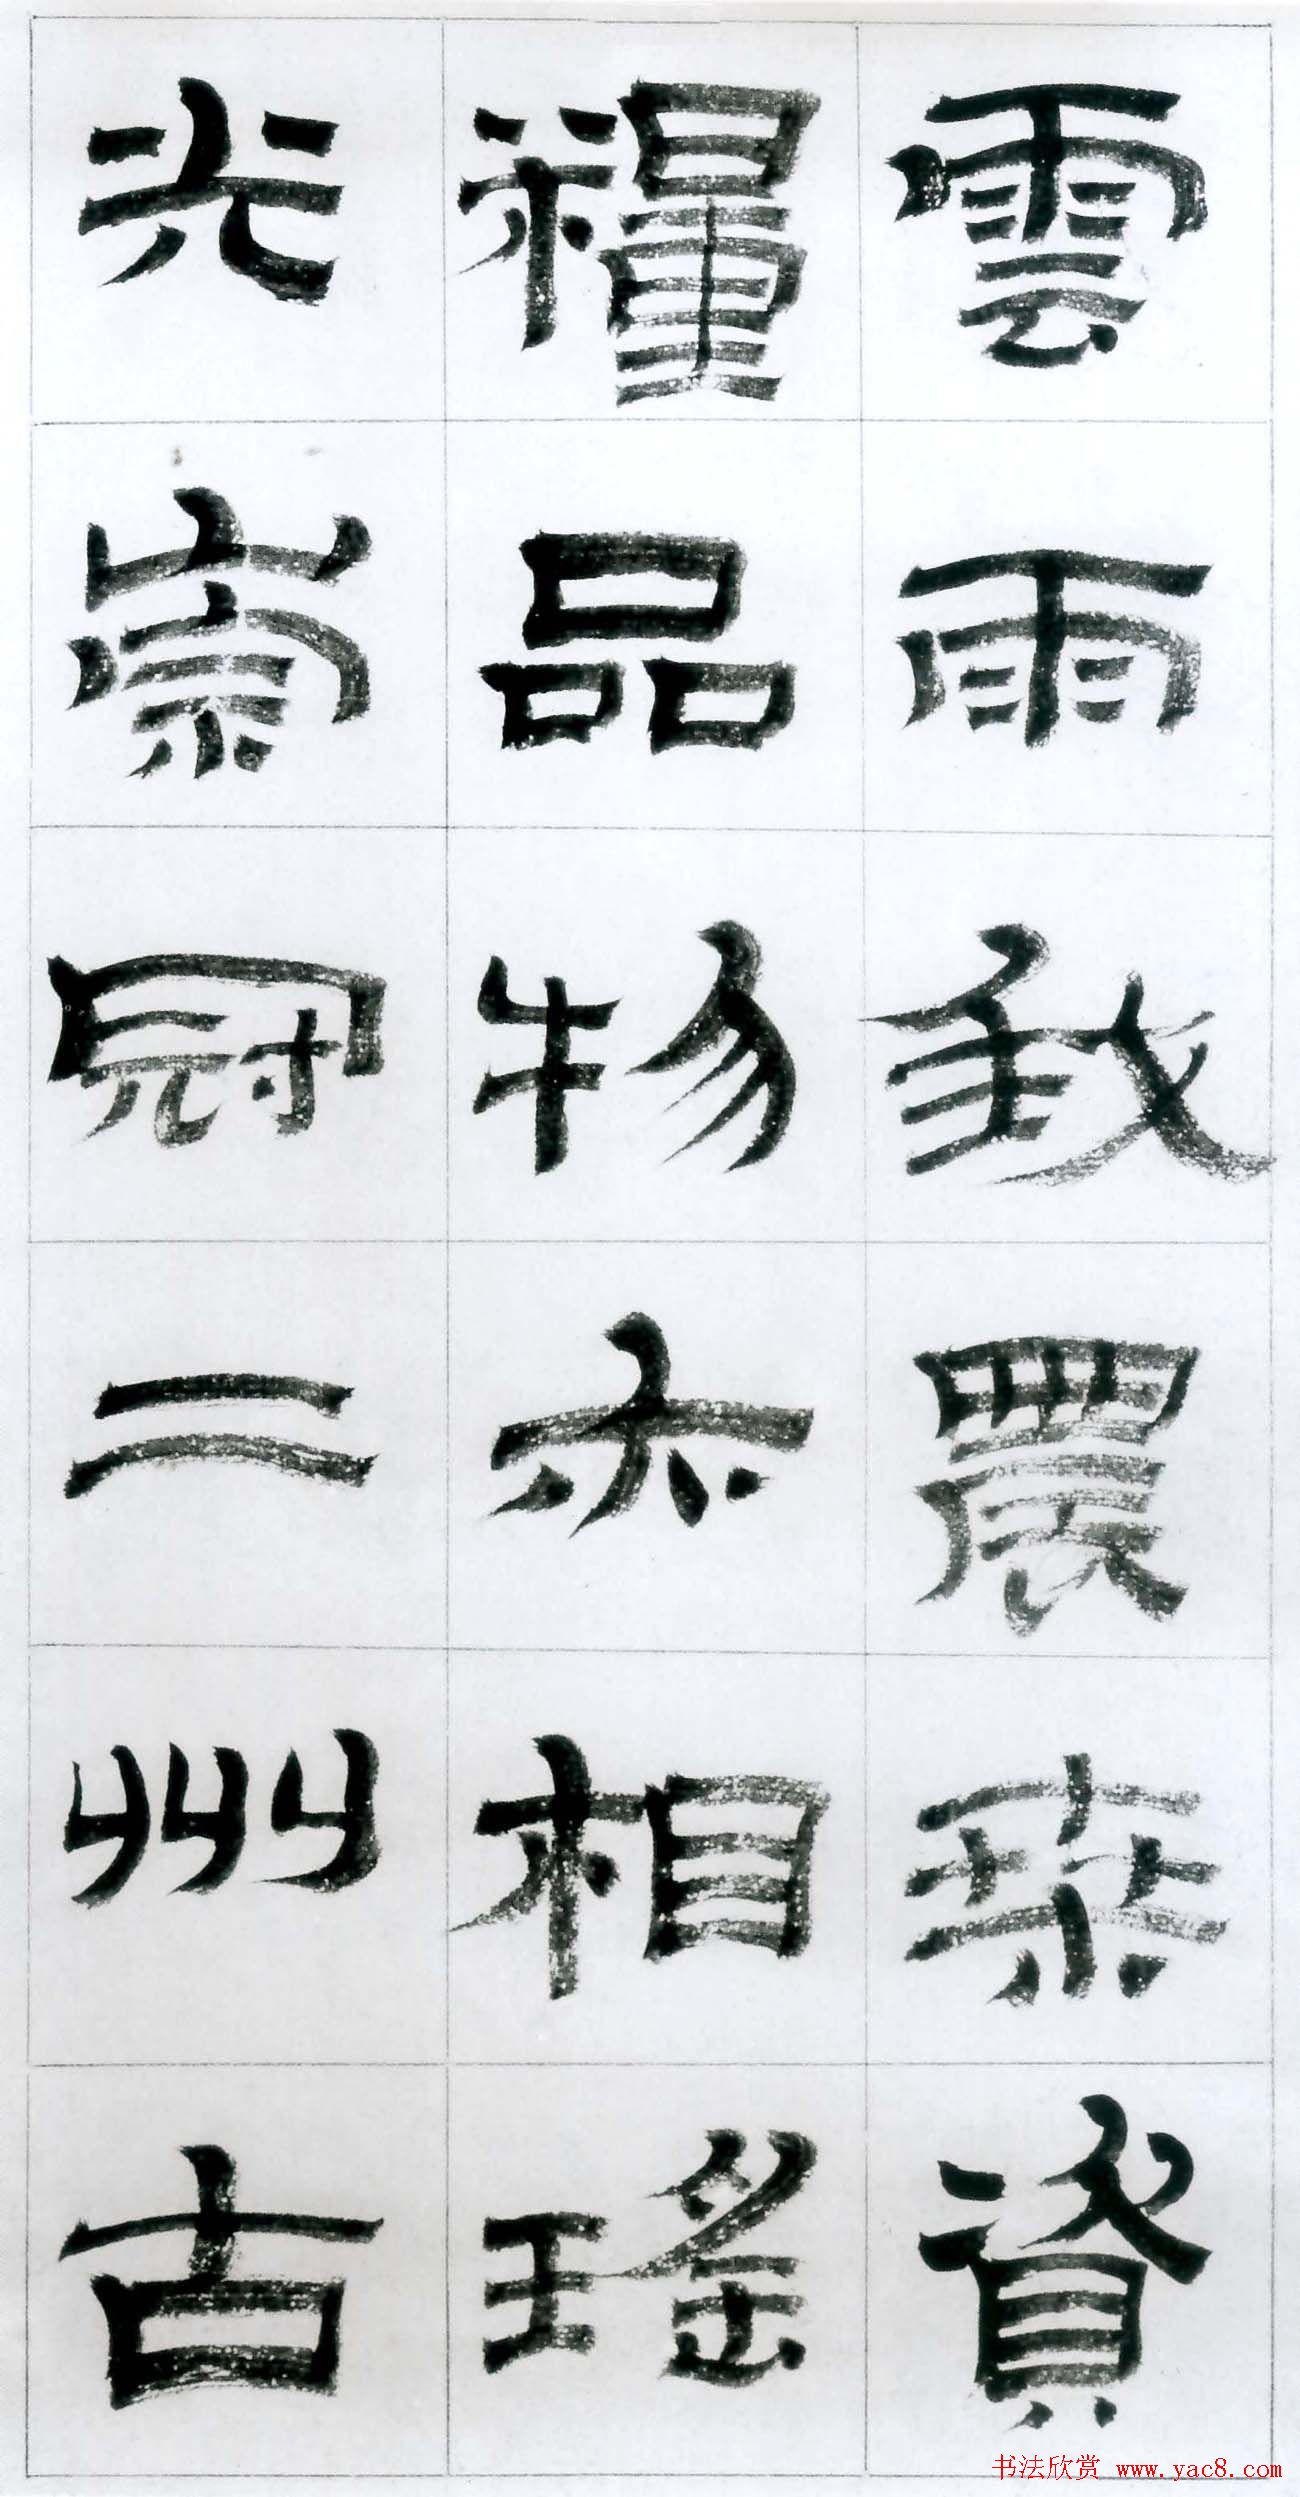 雲雨我農桒資
糧品物亦相瑤
光崇冠二州古
书法欣赏 www.yac8.com